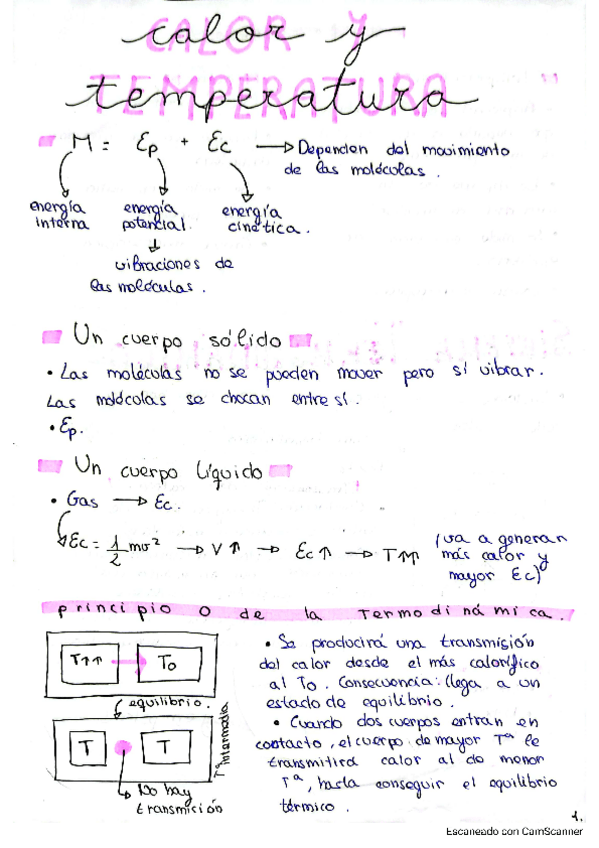 calor y
temperatura
M = Ep + Ec → Dependen del movimiento
de las moléculas.
energía interna
energía potencial.
energía cinética.
vibraciones de
las moléculas.
Un cuerpo sólido
• Las moléculas no se pueden mover pero sí vibrar.
Las moléculas se chocan entre sí.
• Ep.
Un cuerpo líquido
• Gas → Ec.
Ec = 1/2 mv² → V↑ → Ec↑ → T↑↑ (va a generar
más calor y
mayor Ec)
principio 0 de la Termodinámica.
T↑↑ → To
equilibrio.
T T
Tª Intermedia
No hay
transmisión
• Se producirá una transmisión
del calor desde el más calorífico
al To. Consecuencia: llega a un
estado de equilibrio.
• Cuando dos cuerpos entran en
contacto, el cuerpo de mayor Tª le
transmitirá calor al de menor
Tª, hasta conseguir el equilibrio
térmico.
1.
Escaneado con CamScanner